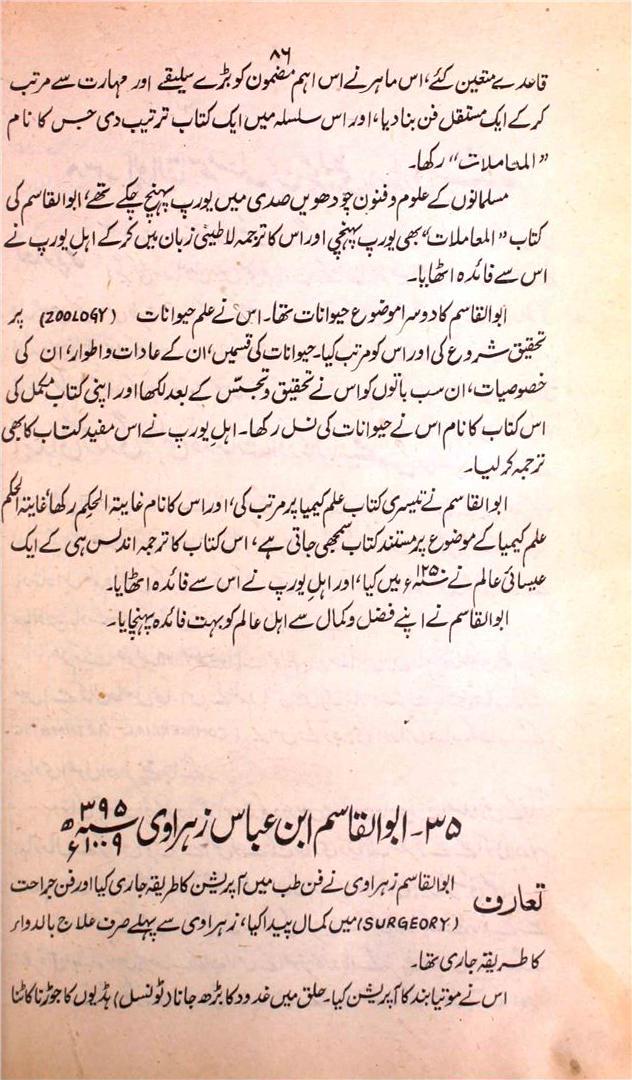 ۸۶
قاعدے متعین کئے، اس ماہر نے اس اہم مضمون کو بڑے سلیقے اور مہارت سے مرتب
کرکے ایک مستقل فن بنا دیا، اور اس سلسلہ میں ایک کتاب ترتیب دی جس کا نام
"المعاملات" رکھا۔
مسلمانوں کے علوم و فنون چودھویں صدی میں یورپ پہنچ چکے تھے، ابوالقاسم کی
کتاب "المعاملات" بھی یورپ پہنچی اور اس کا ترجمہ لاطینی زبان میں کرکے اہلِ یورپ نے
اس سے فائدہ اٹھایا۔
ابوالقاسم کا دوسرا موضوع حیوانات تھا۔ اس نے علم حیوانات (ZOOLOGY) پر
تحقیق شروع کی اور اس کو مرتب کیا۔ حیوانات کی قسمیں، ان کے عادات و اطوار، ان کی
خصوصیات، ان سب باتوں کو اس نے تحقیق و تجسّس کے بعد لکھا اور اپنی کتاب مکمل کی
اس کتاب کا نام اس نے حیوانات کی نسل رکھا۔ اہلِ یورپ نے اس مفید کتاب کا بھی
ترجمہ کر لیا۔
ابوالقاسم نے تیسری کتاب علم کیمیا پر مرتب کی، اور اس کا نام غایتہ الحکِم رکھا، غایتہ الحکم
علم کیمیا کے موضوع پر مستند کتاب سمجھی جاتی ہے، اس کتاب کا ترجمہ اندلس ہی کے ایک
عیسائی عالم نے ۱۲۵۰ء میں کیا، اور اہلِ یورپ نے اس سے فائدہ اٹھایا۔
ابوالقاسم نے اپنے فضل و کمال سے اہل عالم کو بہت فائدہ پہنچایا۔
۳۵۔ ابوالقاسم ابن عباس زہراوی ۳۹۵ھ ۱۰۰۹ء
تعارف ابوالقاسم زہراوی نے فن طب میں آپریشن کا طریقہ جاری کیا اور فن جراحت
(SURGEORY) میں کمال پیدا کیا، زہراوی سے پہلے صرف علاج بالدواء
کا طریقہ جاری تھا۔
اس نے موتیا بند کا آپریشن کیا۔ حلق میں غدود کا بڑھ جانا (ٹونسل) ہڈیوں کا جوڑنا کاٹنا